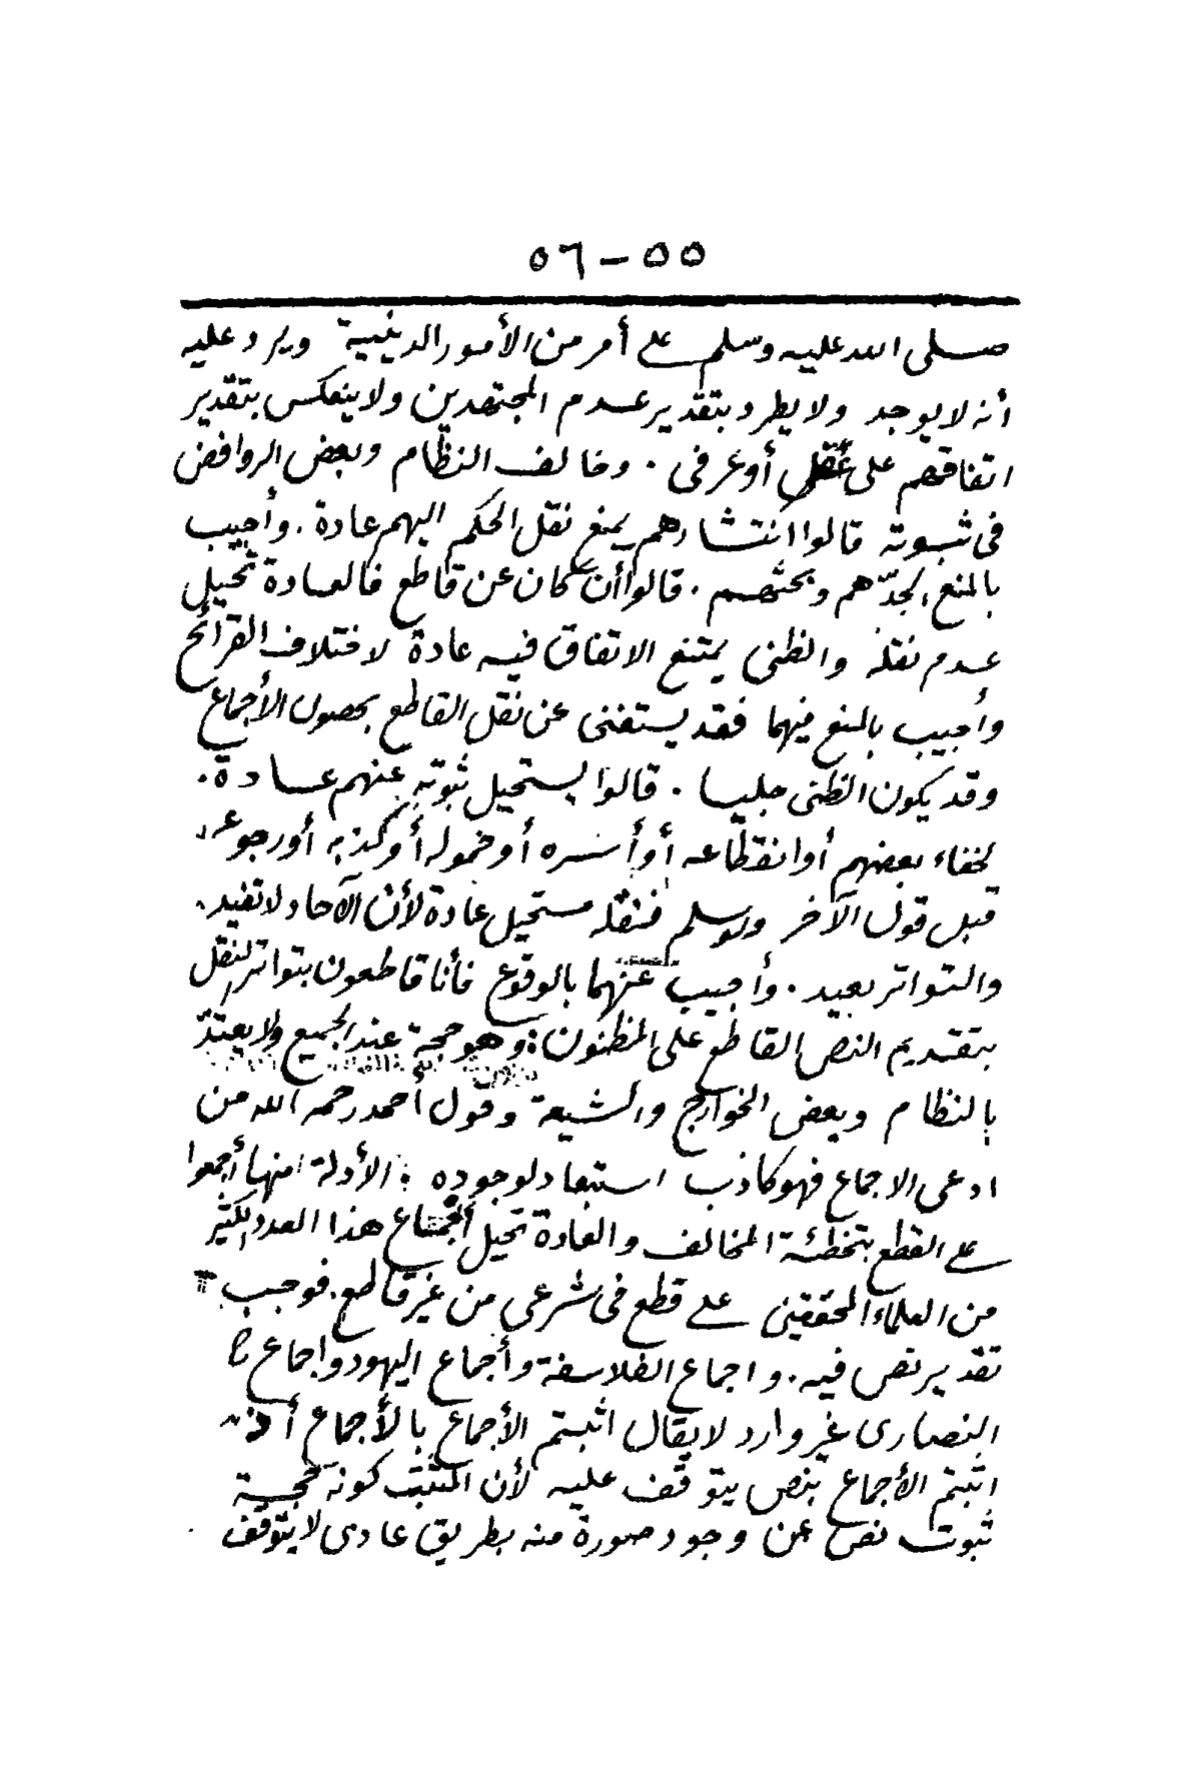 ٥٥ – ٥٦
صلى الله عليه وسلم على أمر من الأمور الدينية ويرد عليه
أنه لا يوجد ولا يطرد بتقدير عدم المجتهدين ولا ينعكس بتقدير
اتفاقهم على عقلى أو عرفى . وخالف النظام وبعض الروافض
فى ثبوته قالوا انتشارهم يمنع نقل الحكم اليهم عادة . وأجيب
بالمنع لجدّهم وبحثهم . قالوا أن كان عن قاطع فالعادة تحيل
عدم نقله والظنى يمتنع الاتفاق فيه عادة لاختلاف القرائح
وأجيب بالمنع فيهما فقد يستغنى عن نقل القاطع بحصول الأجماع
وقد يكون الظنى جليا . قالوا يستحيل ثبوته عنهم عادة .
لخفاء بعضهم أو انقطاعه أو أسره أو خموله أو كذبه أو رجوعه
قبل قول الآخر ولو سلم فنقله مستحيل عادة لأن الآحاد لا تفيد .
والتواتر بعيد . وأجيب عنهما بالوقوع فأنا قاطعون بتواتر النقل
بتقديم النص القاطع على المظنون : وهو حجة عند الجميع ولا يعتدّ
بالنظام وبعض الخوارج والشيعة وقول أحمد رحمه الله من
ادعى الاجماع فهو كاذب استبعاد لوجوده : الأدلة منها أجمعوا
على القطع بتخطئة المخالف والعادة تحيل أجماع هذا العدد الكثير
من العلماء المحققين على قطع فى شرعى من غير قاطع . فوجب
تقدير نص فيه . واجماع الفلاسفة وأجماع اليهود واجماع
النصارى غير وارد لا يقال اثبتم الأجماع بالأجماع أو
اثبتم الأجماع بنص يتوقف عليه لأن المثبت كونه حجة
ثبوت نص عن وجود صورة منه بطريق عادى لا يتوقف